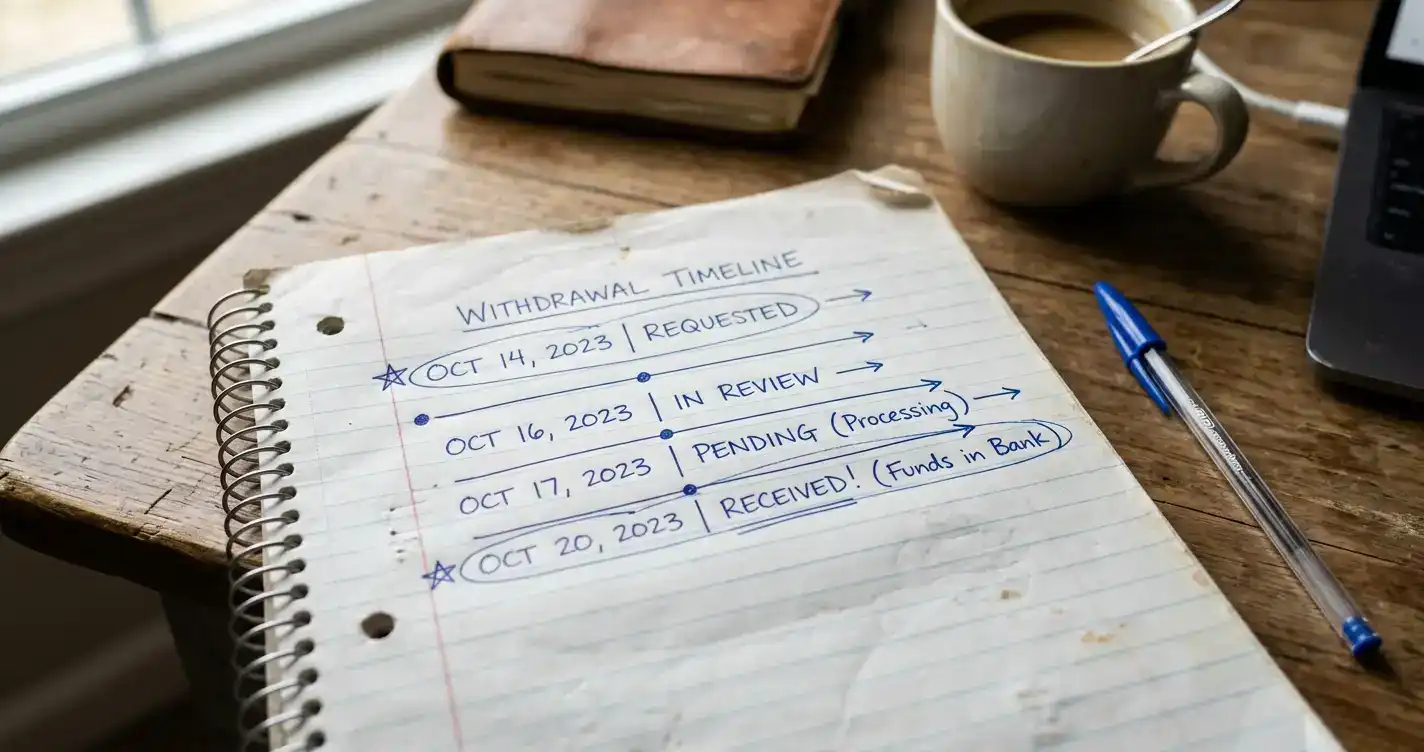 WITHDRAWAL TIMELINE
OCT 14, 2023 | REQUESTED
OCT 16, 2023 | IN REVIEW
OCT 17, 2023 | PENDING (Processing)
OCT 20, 2023 | RECEIVED! (Funds in Bank)